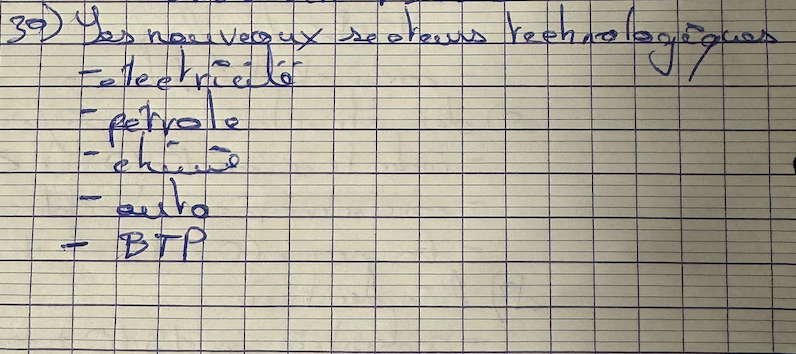 3°) Les nouveaux secteurs technologiques
- electricité
- petrole
- chimie
- auto
- BTP